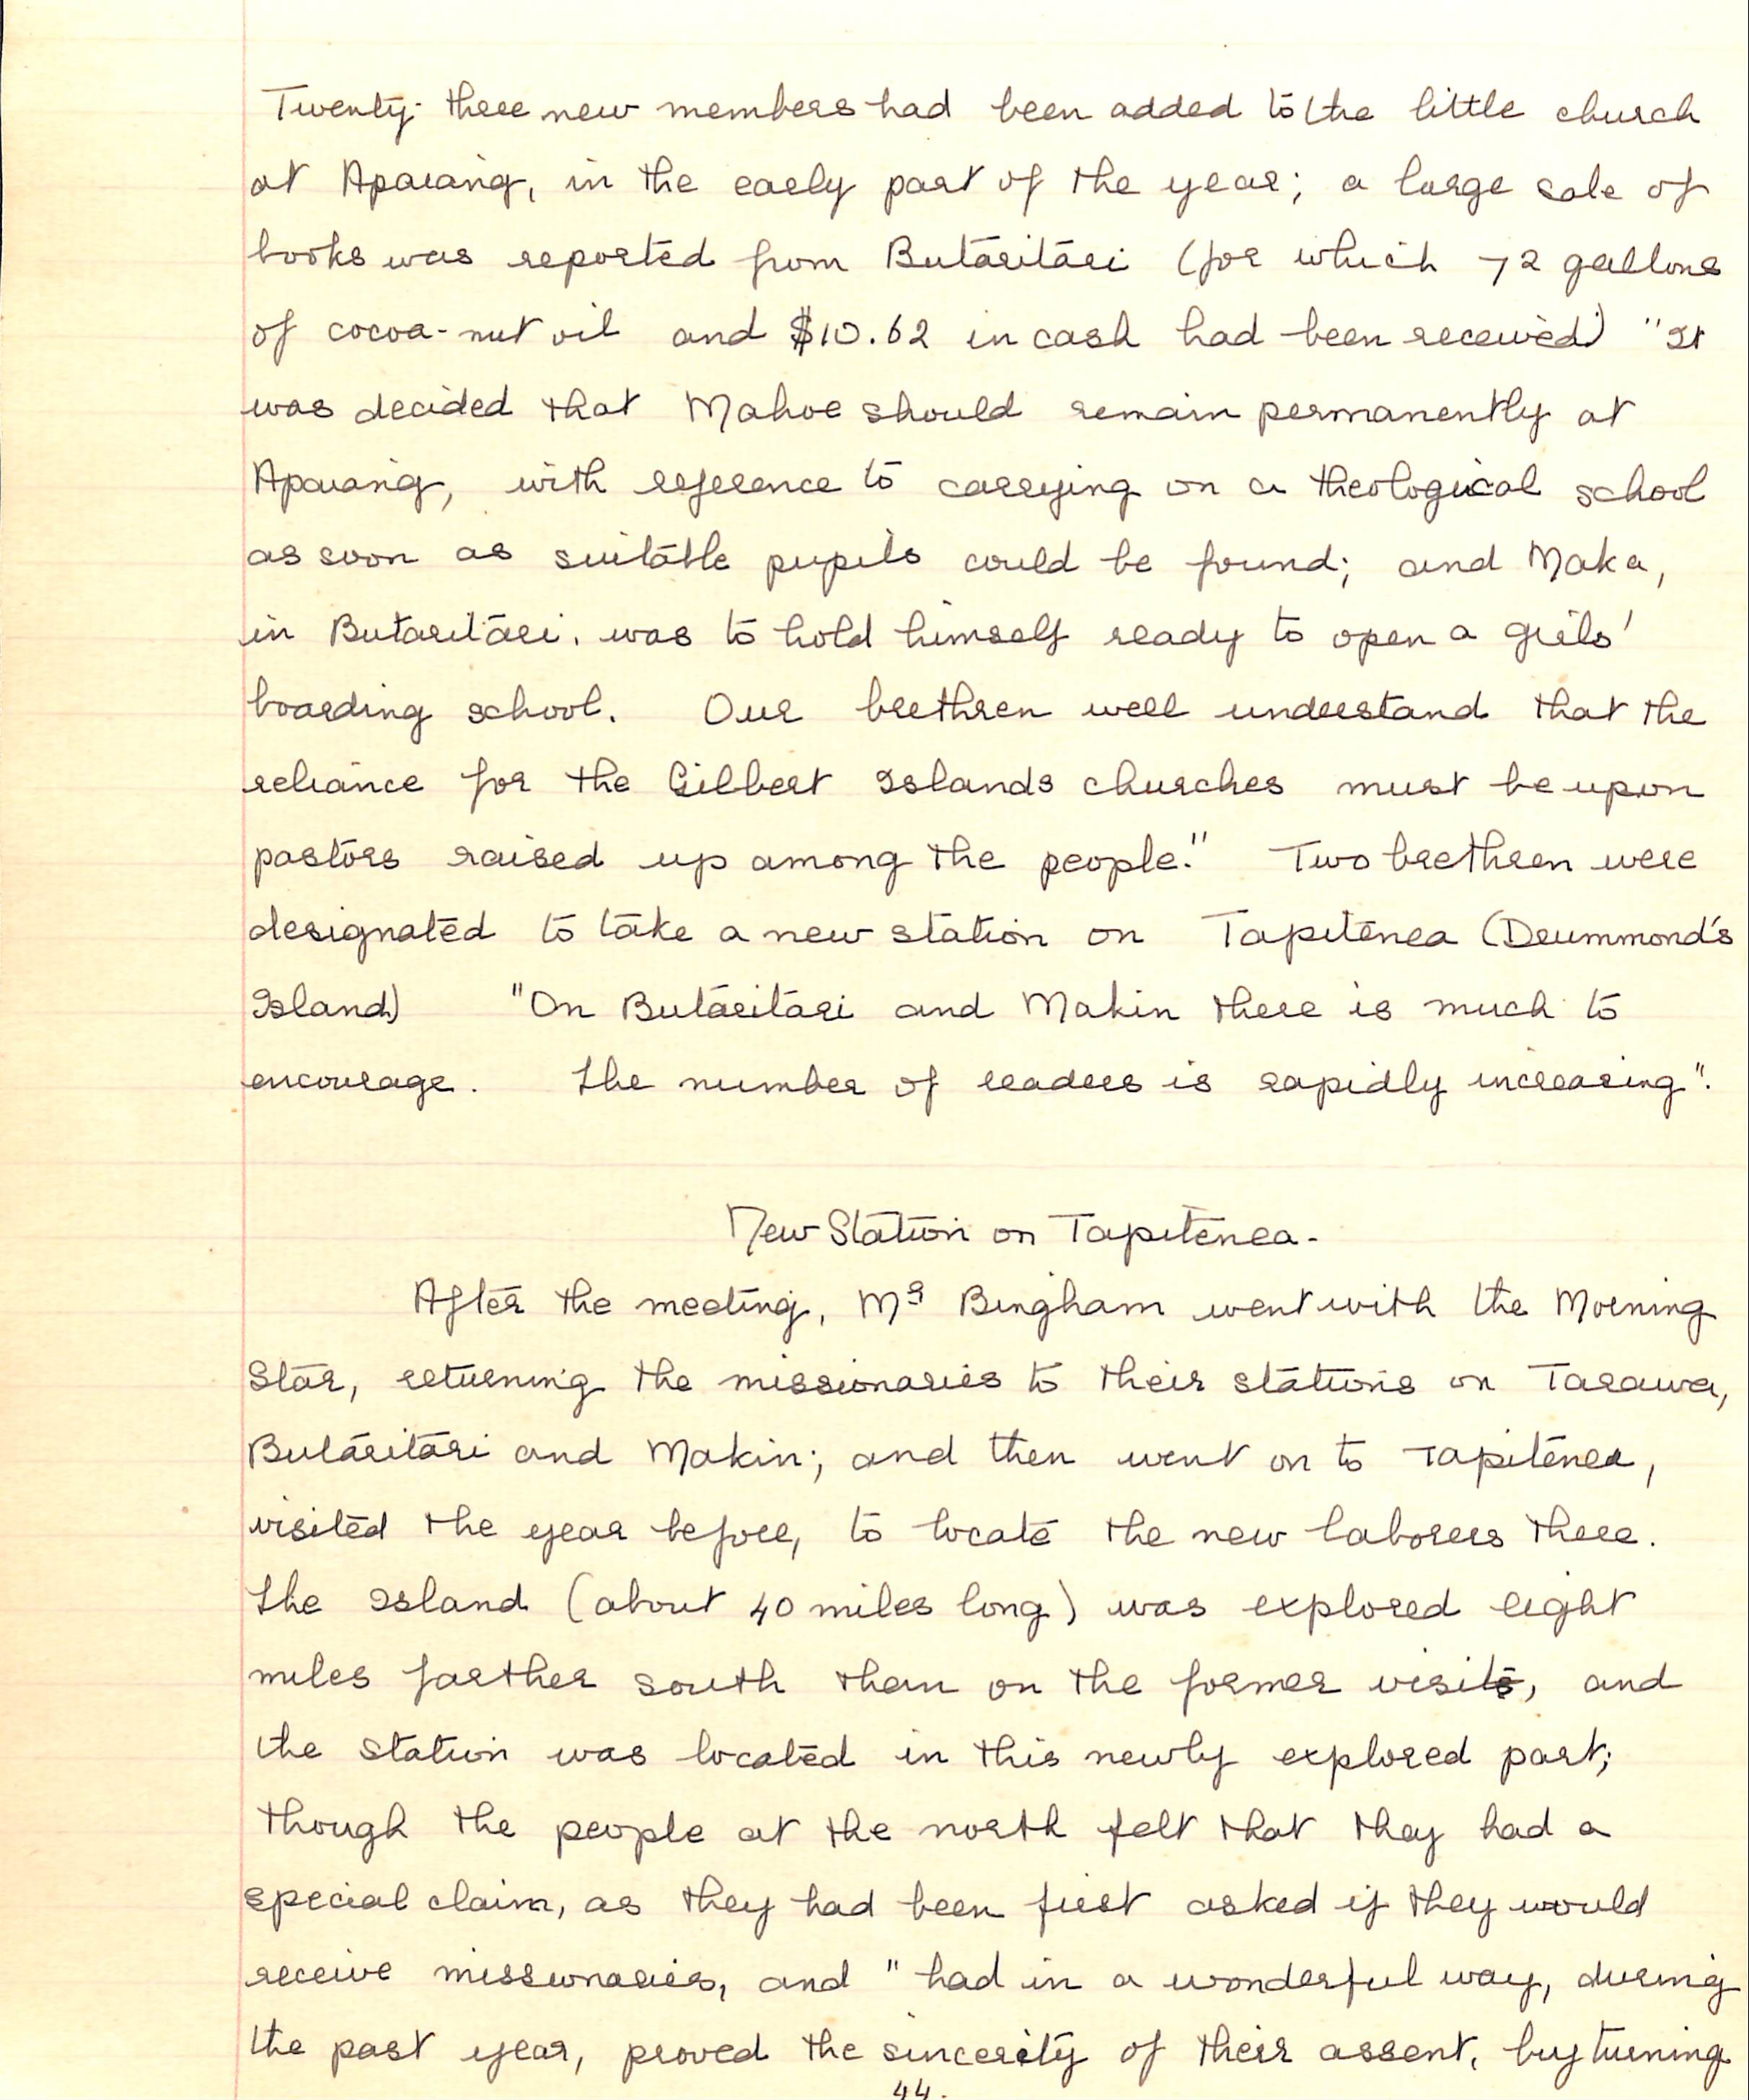 Twenty-three new members had been added to the little church
at Apaiang, in the early part of the year; a large sale of
books was reported from Butaritari (for which 72 gallons
of cocoa-nut oil and $10.62 in cash had been received) "It
was decided that Mahoe should remain permanently at
Apaiang, with reference to carrying on a theological school
as soon as suitable pupils could be found; and Maka,
in Butaritari, was to hold himself ready to open a girls'
boarding school. Our brethren well understand that the
reliance for the Gilbert Islands churches must be upon
pastors raised up among the people." Two brethren were
designated to take a new station on Tapitenea (Drummond's
Island) "On Butaritari and Makin there is much to
encourage. The number of readers is rapidly increasing".
New Station on Tapitenea-
After the meeting, Mr Bingham went with the Morning
Star, returning the missionaries to their stations on Tarawa,
Butaritari and Makin; and then went on to Tapitenea,
visited the year before, to locate the new laborers there.
The Island (about 40 miles long) was explored eight
miles farther south than on the former visit, and
the station was located in this newly explored part;
though the people at the north felt that they had a
special claim, as they had been first asked if they would
receive missionaries, and "had in a wonderful way, during
the past year, proved the sincerity of their assent, by turning
44.